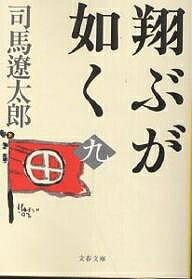 翔ぶが
如く
九
司馬遼太郎
文春文庫